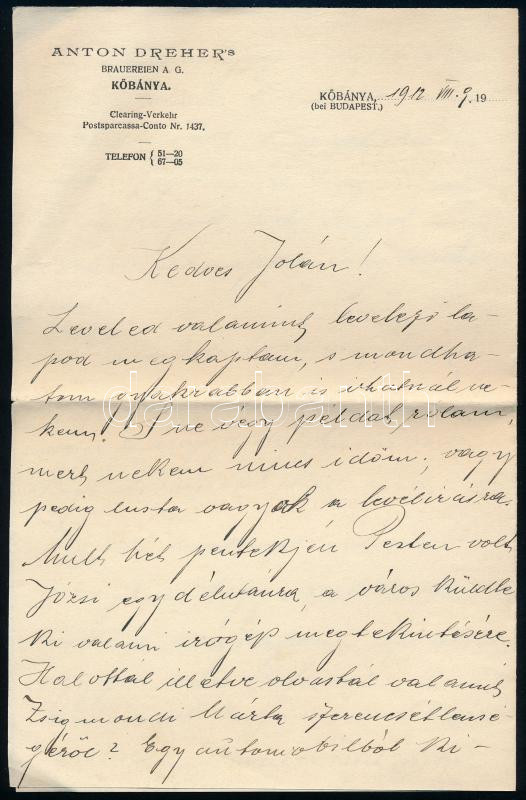 ANTON DREHER's
BRAUEREIEN A. G.
KŐBÁNYA.
Clearing-Verkehr
Postsparcassa-Conto Nr. 1437.
TELEFON { 51—20
67—05
KŐBÁNYA, 1912 VIII. 9. 19
(bei BUDAPEST,)
Kedves Jolán!
Leveled valamint levelező la-
pod megkaptam, s mondha-
tom gyakrabban is irhatnál ne-
kem. S ne végy példát rólam,
mert nekem nincs időm, vagy
pedig lusta vagyok a levélirásra.
Mult hét péntekjén Pesten volt
Józsi egy délutánra, a város küldte
ki valami irógép megtekintésére.
Halottál illetve olvastál valamit
Zsigmondi Márta szerencsétlensé-
géről? Egy automobilból ki-
darabanth